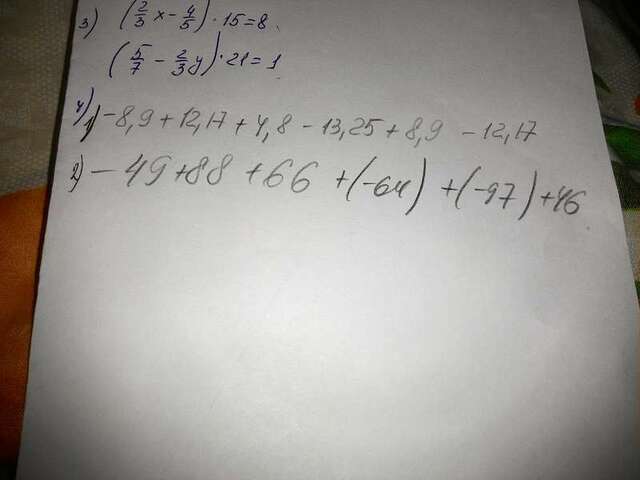 3) (2/3 x - 4/5) · 15 = 8
(5/7 - 2/3 y) · 21 = 1
4)
1) -8,9 + 12,17 + 4,8 - 13,25 + 8,9 - 12,17
2) - 49 + 88 + 66 + (-64) + (-97) + 46